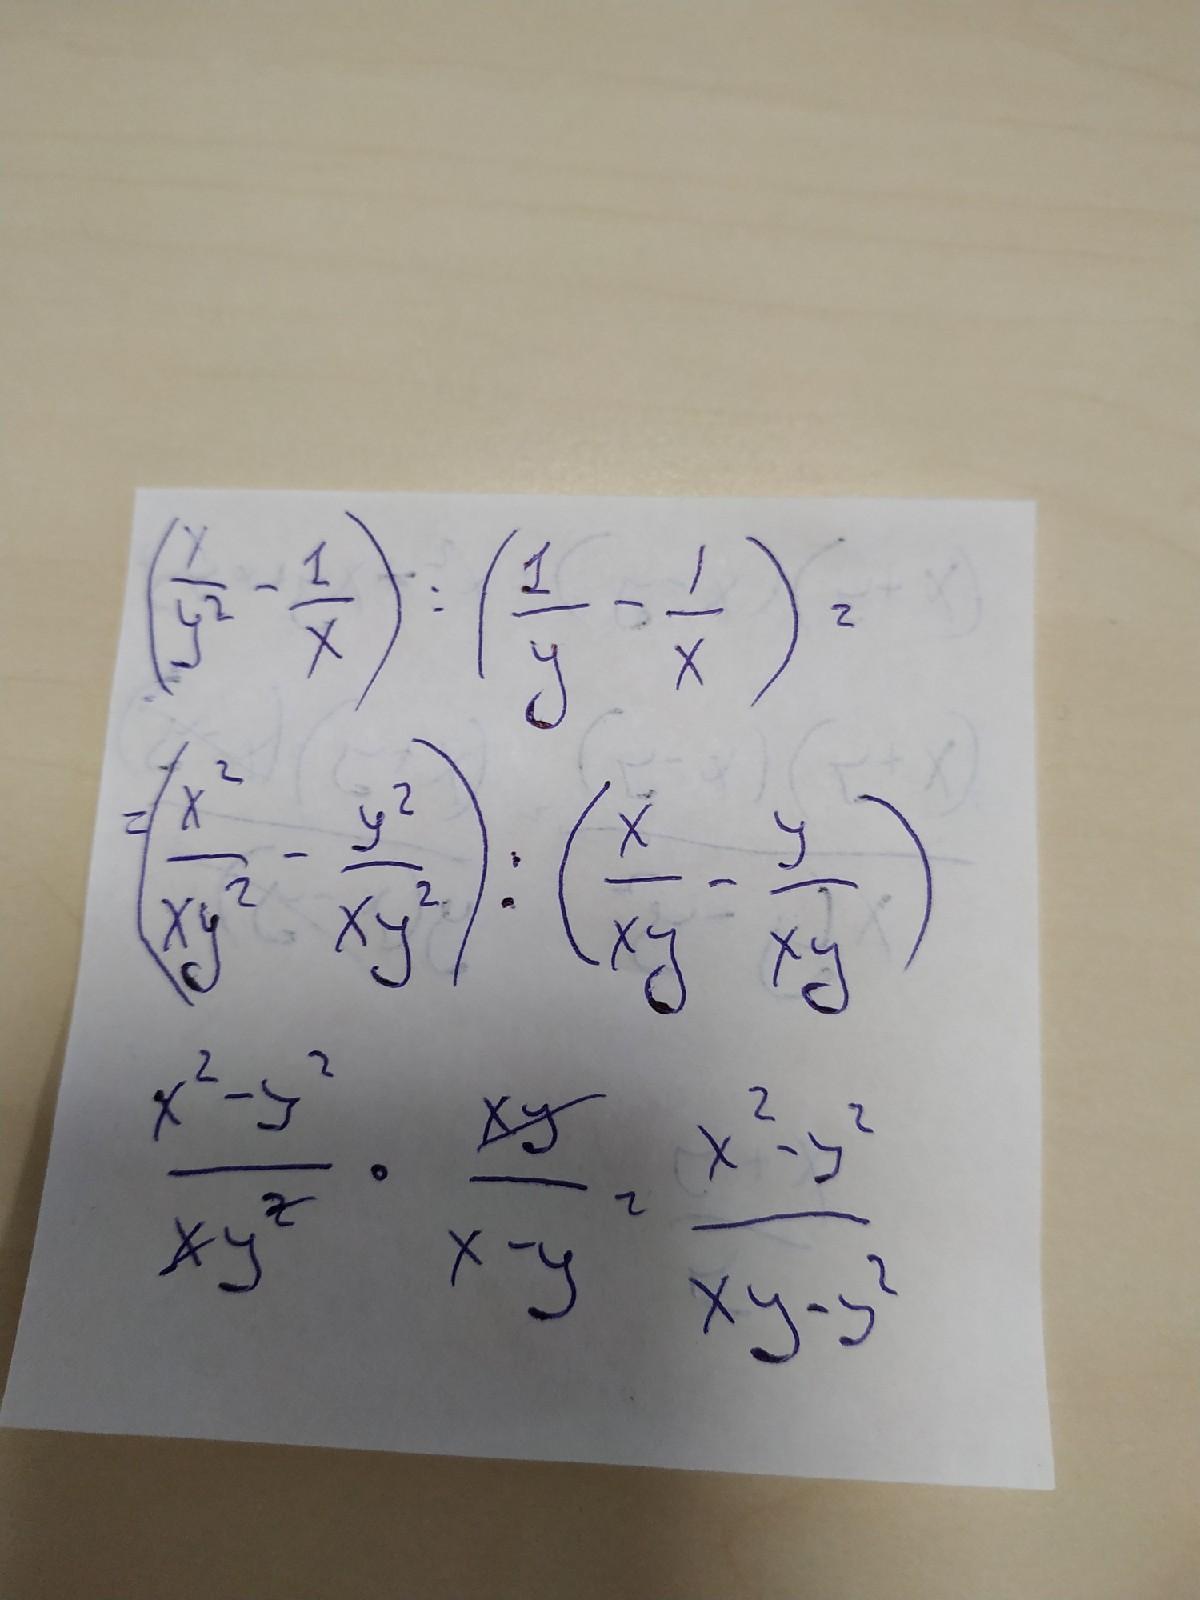 (x/y² - 1/x) : (1/y - 1/x) =
= (x²/xy² - y²/xy²) : (x/xy - y/xy)
x² - y²/xy² · xy/x - y = x² - y²/xy - y²